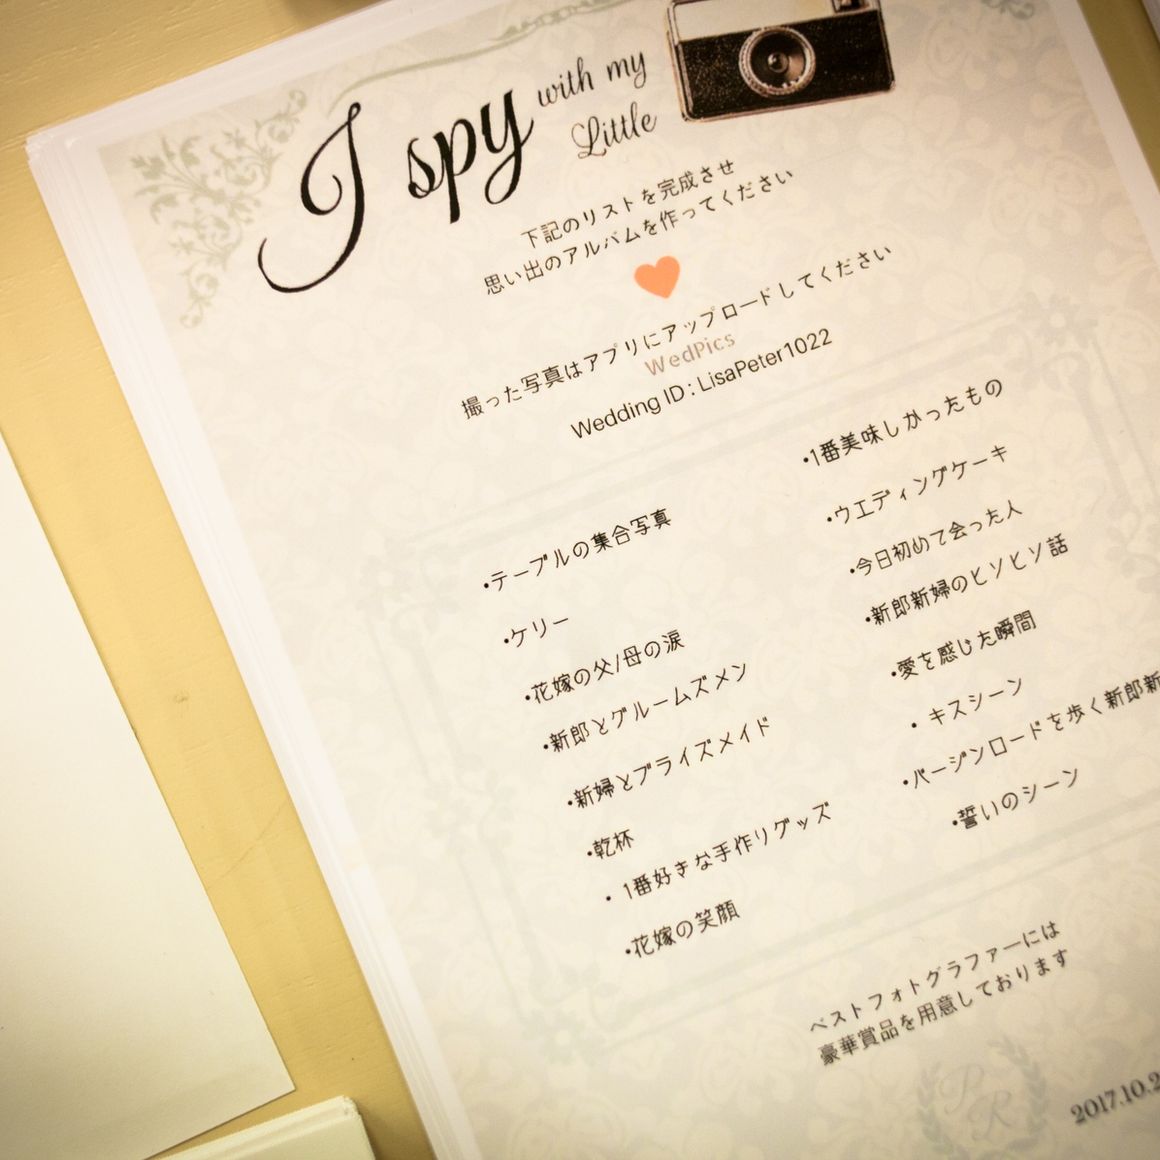 I spy with my
Little
下記のリストを完成させ
思い出のアルバムを作ってください
撮った写真はアプリにアップロードしてください
WedPics
Wedding ID : LisaPeter1022
•テーブルの集合写真
•ケリー
•花嫁の父/母の涙
•新郎とグルームズメン
•新婦とブライズメイド
•乾杯
• 1番好きな手作りグッズ
•花嫁の笑顔
•1番美味しかったもの
•ウエディングケーキ
•今日初めて会った人
•新郎新婦のヒソヒソ話
•愛を感じた瞬間
• キスシーン
•バージンロードを歩く新郎新
•誓いのシーン
ベストフォトグラファーには
豪華賞品を用意しております
P R
2017.10.2